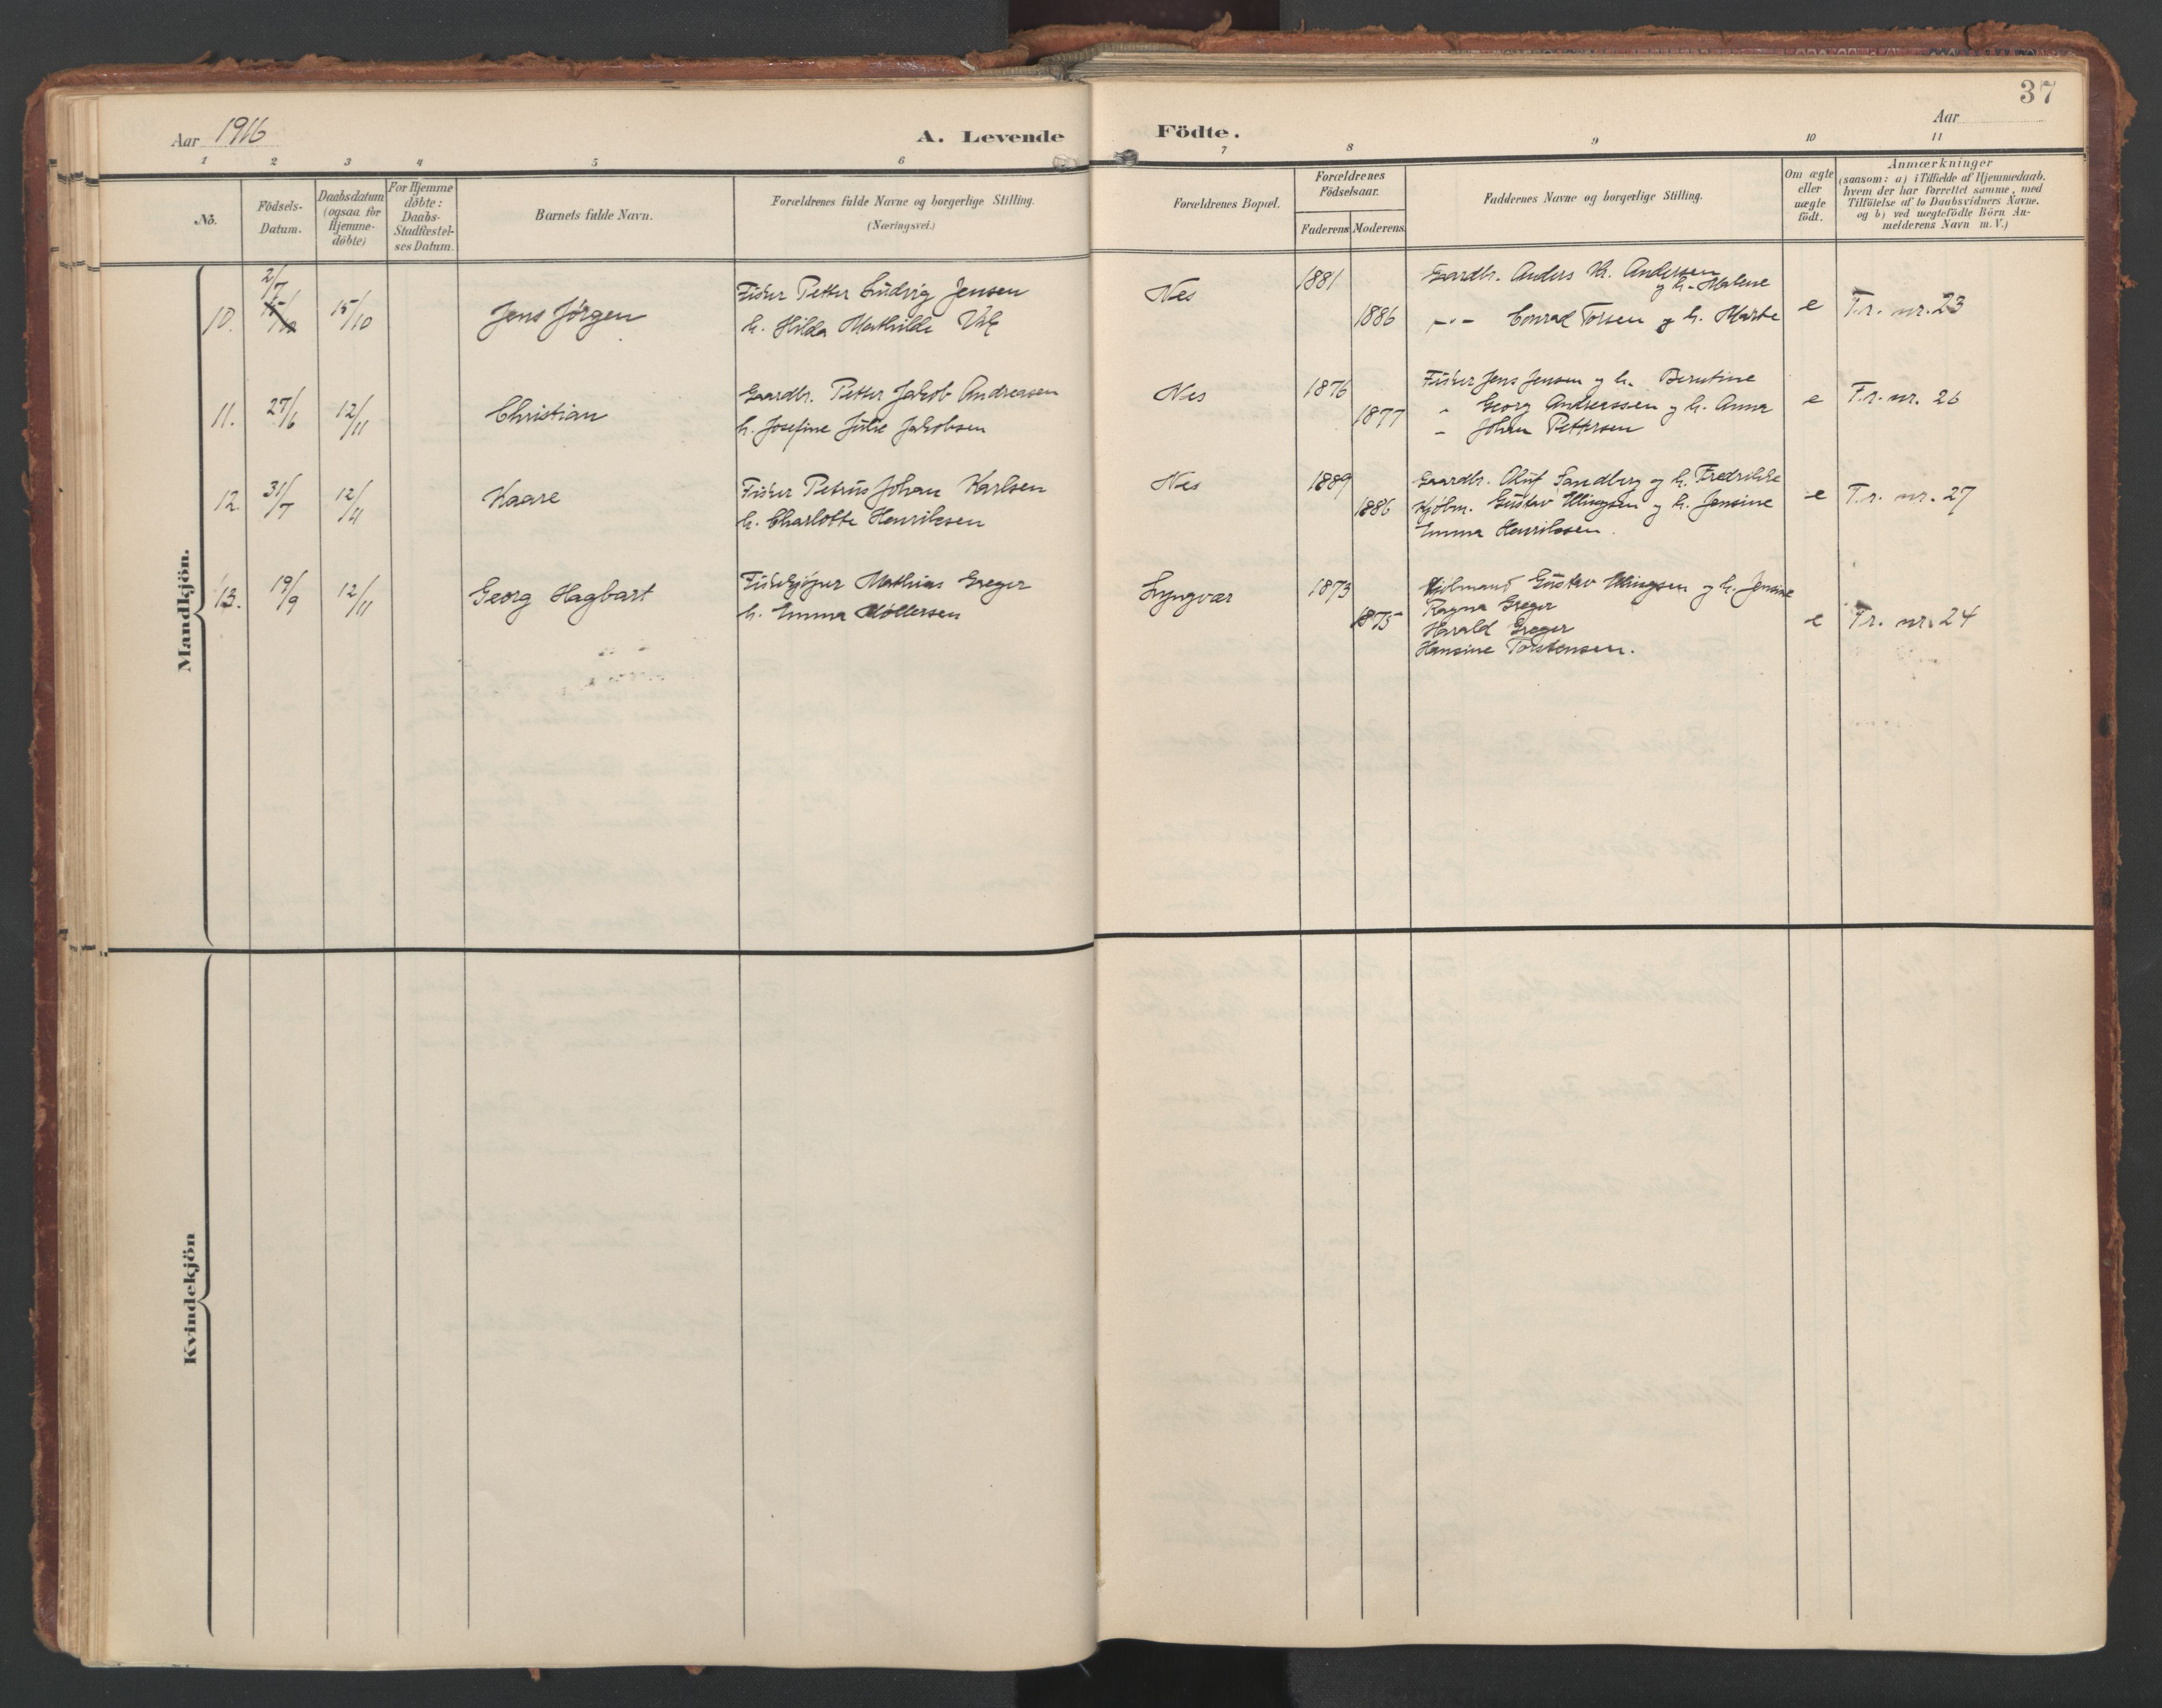 37
Aar 1916
A. Levende Födte.
Aar
1 2 3 4 5 6 7 8 9 10 11
No.
Födsels-Datum.
Daabsdatum (ogsaa for Hjemmedöbte)
For Hjemmedöbte: Daabs-Stadfæstelses Datum.
Barnets fulde Navn.
Forældrenes fulde Navne og borgerlige Stilling.
(Næringsvei.)
Forældrenes Bopæl.
Forældrenes Födselsaar.
Faderens Moderens
Faddernes Navne og borgerlige Stilling.
Om ægte eller uægte födt.
Anmærkninger
(saasom: a) i Tilfælde af Hjemmedaab.
hvem der har forrettet samme, med
Tilföielse af to Daabsvidners Navne.
og b) ved uægtefödte Börn Anmelderens Navn m. V.)
Mandkjön.
10. 2/7 15/10 Jens Jørgen
Fisker Petter Ludvig Jensen
h. Hilda Mathilde
Nes 1881 1886
Gaardbr. Anders Kr. Andersen
og h. Malene
—"— Conrad Torsen og h. Marte
e T.r. nr. 23
11. 27/6 12/11 Christian
Gaardbr. Petter Jakob Andreasen
h. Josefine Julie Jakobsen
Nes 1876 1877
Fisker Jens Jensen og h. Berntine
" Georg Andreassen og h. Anna
– Johan Pettersen
e T.r. nr. 26
12. 31/7 12/11 Kaare
Fisker Petrus Johan Karlsen
h. Charlotte Henriksen
Nes 1889 1886
Gaardbr. Oluf Sandberg og h. Fredrikke
Kjøbm. Gustav Ellingsen og h. Jensine
Emma Henriksen.
e T.r. nr. 27
13. 19/9 12/11 Georg Hagbart
Fiskekjøper Mathias Greger
h. Emma Møllersen
Lyngvær 1873 1875
Kjøbmand Gustav Ellingsen og h. Jensine
Ragna Greger
Harald Greger
Hansine Torstensen.
e T.r. nr. 24
Kvindekjön